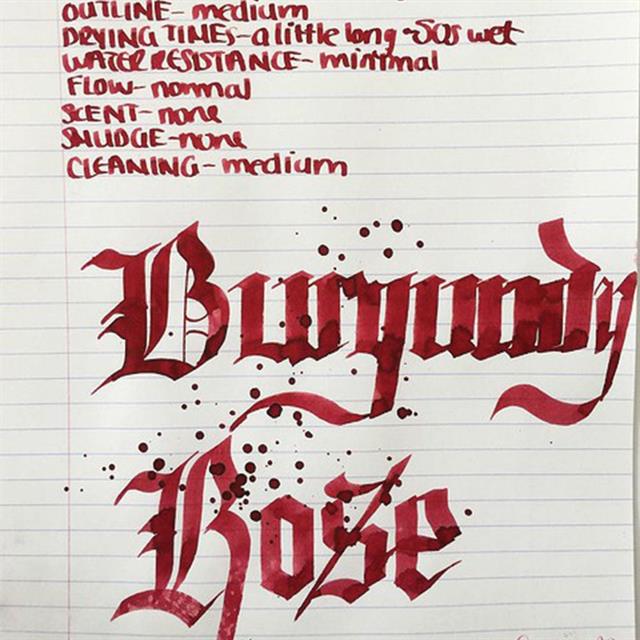 OUTLINE- medium
DRYING TIMES-a little long ~50s wet
WATER RESISTANCE- minimal
FLOW- normal
SCENT- none
SMUDGE-none
CLEANING- medium
Burgundy
Rose